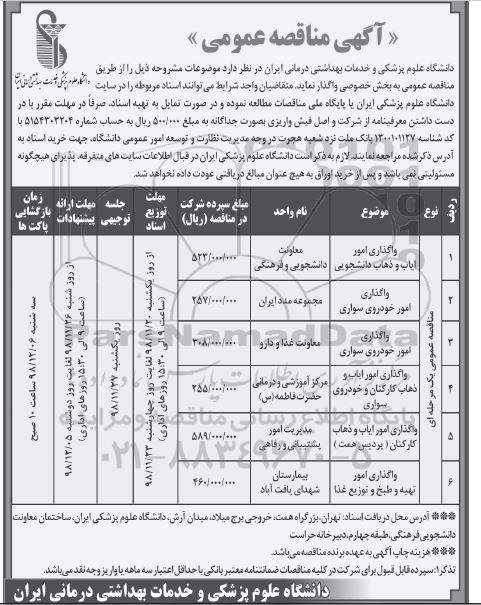 « آگهی مناقصه عمومی »
دانشگاه علوم پزشکی و خدمات بهداشتی درمانی ایران
دانشگاه علوم پزشکی و خدمات بهداشتی درمانی ایران در نظر دارد موضوعات مشروحه ذیل را از طریق
مناقصه عمومی به بخش خصوصی واگذار نماید. متقاضیان واجد شرایط می توانند اسناد مربوطه را در سایت
دانشگاه علوم پزشکی ایران یا پایگاه ملی مناقصات مطالعه نموده و در صورت تمایل به تهیه اسناد، صرفاً در مهلت مقرر با در
دست داشتن معرفینامه از اصل فیش واریزی بصورت جداگانه به مبلغ ۵۰۰/۰۰۰ ریال به حساب شماره ۵۱۵۴۳۰۳۲۰۴ با
کد شناسه ۱۳۰۰۱۰۱۱۲۷ بانک ملت نزد شعبه هجرت در وجه مدیریت نظارت و توسعه امور عمومی دانشگاه، جهت خرید اسناد به
آدرس ذکر شده مراجعه نمایند. لازم به ذکر است دانشگاه علوم پزشکی ایران در قبال اطلاعات سایت های متفرقه، پذیرای هیچگونه
مسئولیتی نمی باشد و پس از خرید اوراق به هیچ عنوان مبالغ دریافتی عودت داده نخواهد شد.
ردیف نوع موضوع نام واحد مبلغ سپرده شرکت در مناقصه (ریال) مهلت توزیع اسناد جلسه توجیهی مهلت ارائه پیشنهادات زمان بازگشایی پاکت ها
مناقصه عمومی یک مرحله ای
۱ واگذاری امور ایاب و ذهاب دانشجویی معاونت دانشجویی و فرهنگی ۵۲۳/۰۰۰/۰۰۰
۲ واگذاری امور خودروی سواری مجموعه مدد ایران ۲۵۷/۰۰۰/۰۰۰
۳ واگذاری امور خودروی سواری معاونت غذا و دارو ۳۰۸/۰۰۰/۰۰۰
۴ واگذاری امور ایاب و ذهاب کارکنان و خودروی سواری مرکز آموزشی و درمانی حضرت فاطمه (س) ۲۵۵/۰۰۰/۰۰۰
۵ واگذاری امور ایاب و ذهاب کارکنان ( پردیس همت ) مدیریت امور پشتیبانی و رفاهی ۵۸۹/۰۰۰/۰۰۰
۶ واگذاری امور تهیه و طبخ و توزیع غذا بیمارستان شهدای یافت آباد ۴۶۰/۰۰۰/۰۰۰
از روز یکشنبه ۹۸/۱۱/۲۰ لغایت روز چهارشنبه ۹۸/۱۱/۲۳
(ساعت ۹ الی ۱۵:۳۰ روزهای اداری)
روز یکشنبه ۹۸/۱۱/۲۷
از روز شنبه ۹۸/۱۱/۲۶ لغایت روز دوشنبه ۹۸/۱۲/۰۵
(ساعت ۹ الی ۱۵:۳۰ روزهای اداری)
سه شنبه ۹۸/۱۲/۰۶ ساعت ۱۰ صبح
ParsNamadData
پایگاه اطلاع رسانی مناقصه و مزایده
۰۲۱-۸۸۳۴۹۶۷۰-۵
*** آدرس محل دریافت اسناد: تهران، بزرگراه همت، خروجی برج میلاد، میدان آرش، دانشگاه علوم پزشکی ایران، ساختمان معاونت
دانشجویی فرهنگی، طبقه چهارم، دبیرخانه حراست
*** هزینه چاپ آگهی به عهده برنده مناقصه می باشد.
تذکر۱: سپرده قابل قبول برای شرکت در کلیه مناقصات ضمانتنامه معتبر بانکی با حداقل اعتبار سه ماهه یا واریز وجه نقد می باشد.
دانشگاه علوم پزشکی و خدمات بهداشتی درمانی ایران